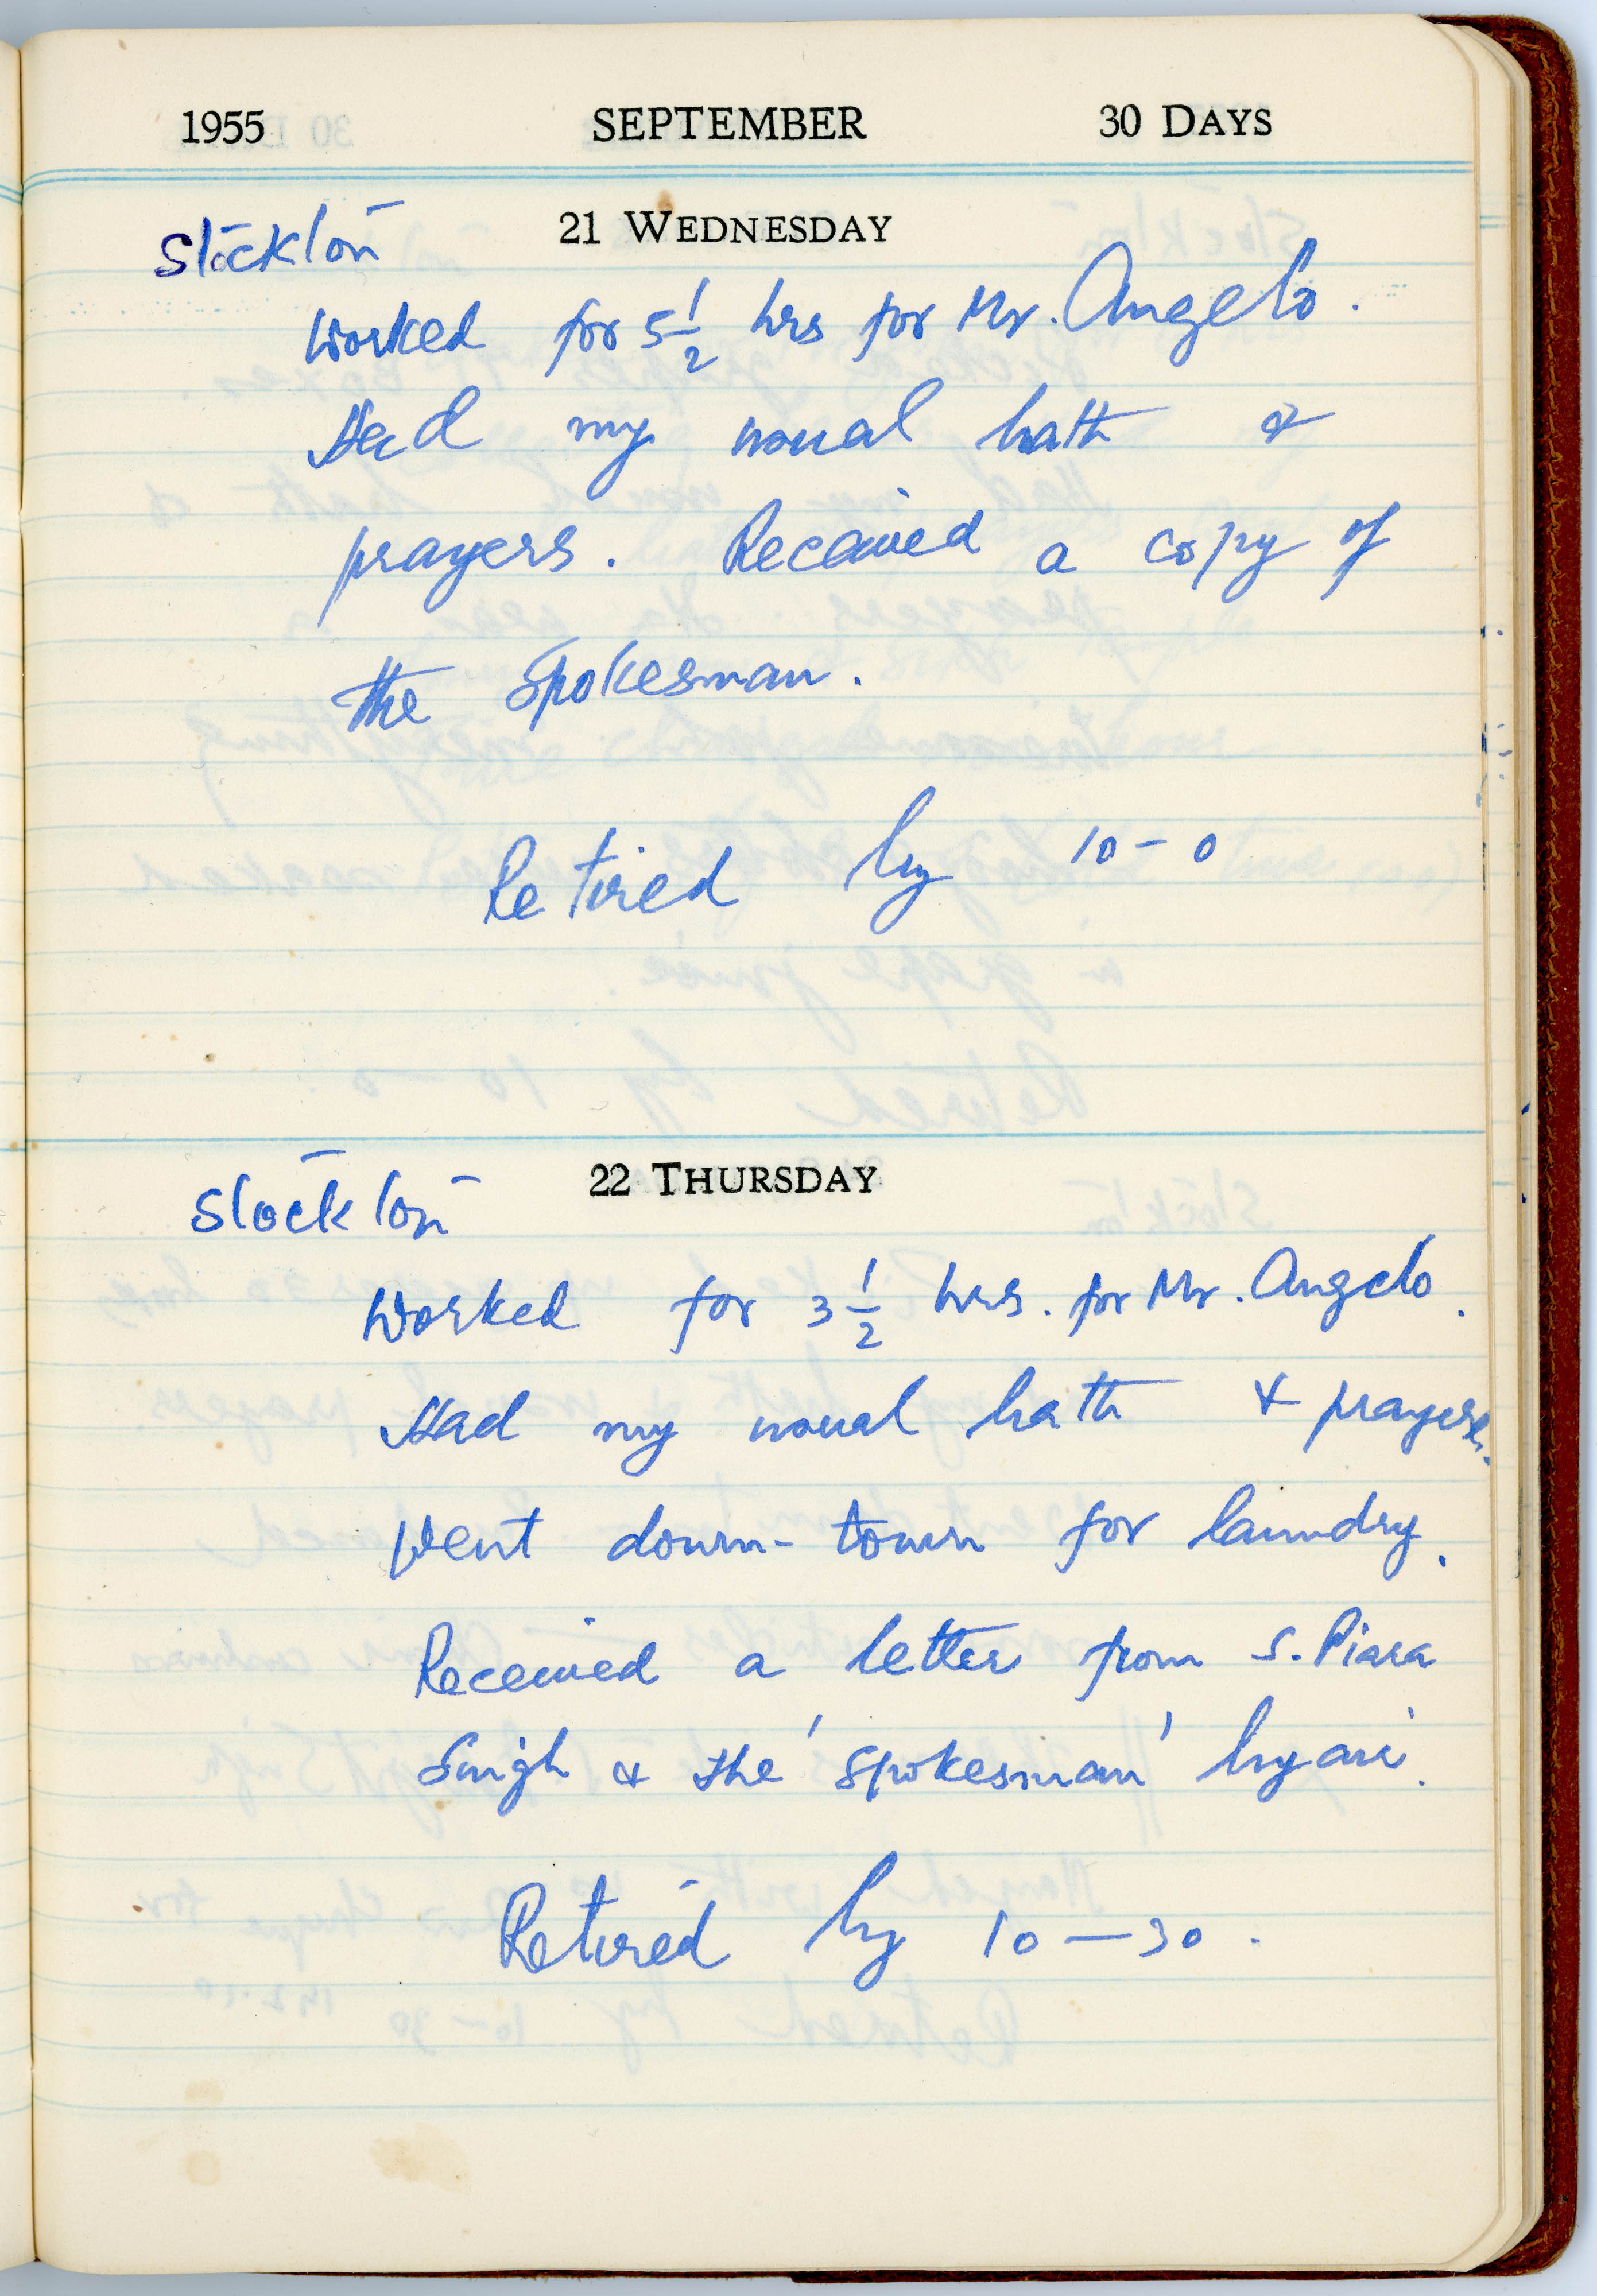 1955 SEPTEMBER 30 DAYS
21 WEDNESDAY
Stockton
Worked for 5 1/2 hrs for Mr. Angelo.
Had my usual bath &
prayers. Received a copy of
the Spokesman.
Retired by 10-0
22 THURSDAY
Stockton
Worked for 3 1/2 hrs. for Mr. Angelo.
Had my usual bath & prayers.
Went down-town for laundry.
Received a letter from S. Piara
Singh & the 'Spokesman' by air.
Retired by 10-30.